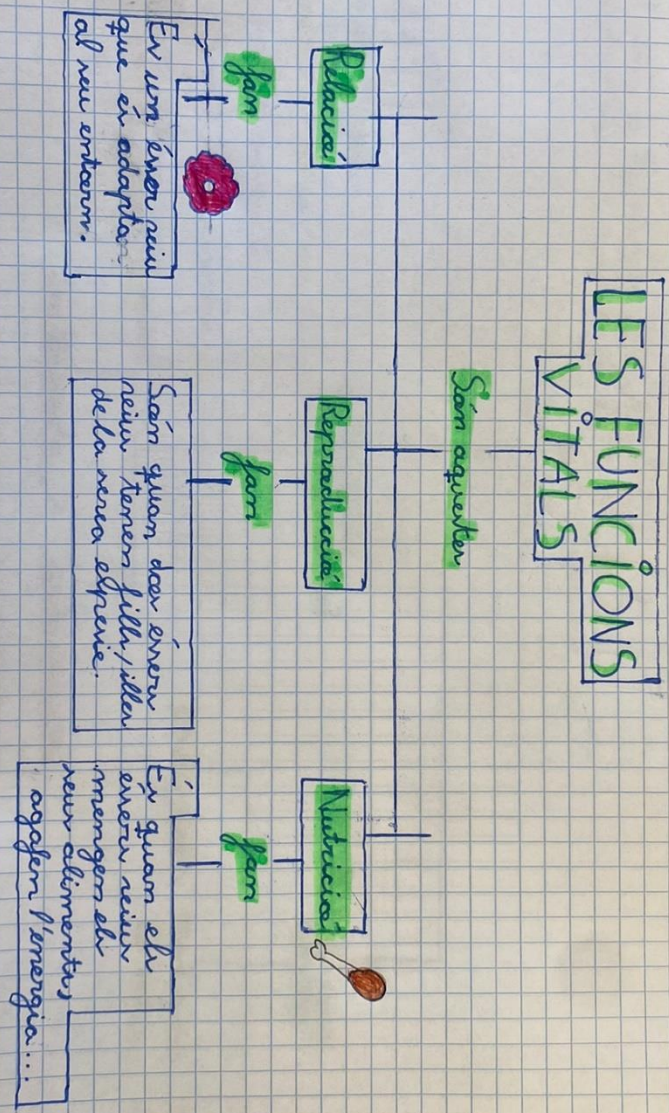 LES FUNCIONS
VITALS
Són aquestes
Relació
fan
És un ésser viu
que és adapta
al seu entorn.
Reproducció
fan
Són quan dos éssers
vius tenen fills/illes
de la seva espècie.
Nutrició
fan
És quan els
éssers vius
mengem els
seus aliments,
agafem l'énergia...